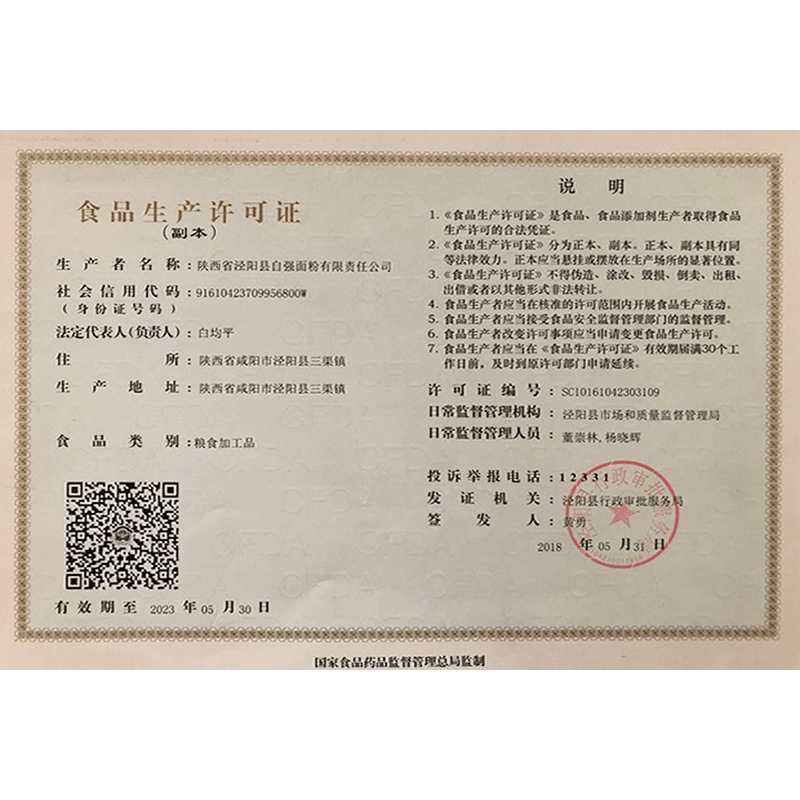 食品生产许可证
(副本)
生产者名称：陕西省泾阳县自强面粉有限责任公司
社会信用代码：91610423709956800W
(身份证号码)
法定代表人(负责人)：白均平
住所：陕西省咸阳市泾阳县三渠镇
生产地址：陕西省咸阳市泾阳县三渠镇
食品类别：粮食加工品
有效期至 2023 年 05 月 30 日
说 明
1.《食品生产许可证》是食品、食品添加剂生产者取得食品
生产许可的合法凭证。
2.《食品生产许可证》分为正本、副本。正本、副本具有同
等法律效力。正本应当悬挂或摆放在生产场所的显著位置。
3.《食品生产许可证》不得伪造、涂改、毁损、倒卖、出租、
出借或者以其他形式非法转让。
4. 食品生产者应当在核准的许可范围内开展食品生产活动。
5. 食品生产者应当接受食品安全监督管理部门的监督管理。
6. 食品生产者改变许可事项应当申请变更食品生产许可。
7. 食品生产者应当在《食品生产许可证》有效期届满30个工
作日前，及时到原许可部门申请延续。
许可证编号：SC10161042303109
日常监督管理机构：泾阳县市场和质量监督管理局
日常监督管理人员：董崇林,杨晓辉
投诉举报电话：12331
发证机关：泾阳县行政审批服务局
签发人：黄勇
2018 年 05 月 31 日
泾阳县行政审批服务局
国家食品药品监督管理总局监制